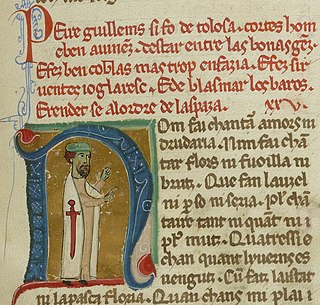 PEire guillems si fo de tolosa. cortes hom
e ben auinēz. destar entre las bonas gēz.
E fez ben coblas mas trop enfazia. E fez sir
uentes ioglarese. E de blasmar los baros.
E rendet se alordre de laspaza.
Nom fai chantar amors ni
drudaria. Nim fai chā
tar flors ni fuoilla ni
brutz. Que fan lauzel
ni p so ni seria. plꝰ chā
taire tant ni quāt ni
plꝰ mutz. Quatressi o
chan quant lyuerns es
uengutz. Cū fai lastat
ni lapasca floria. Quan chans mi plai